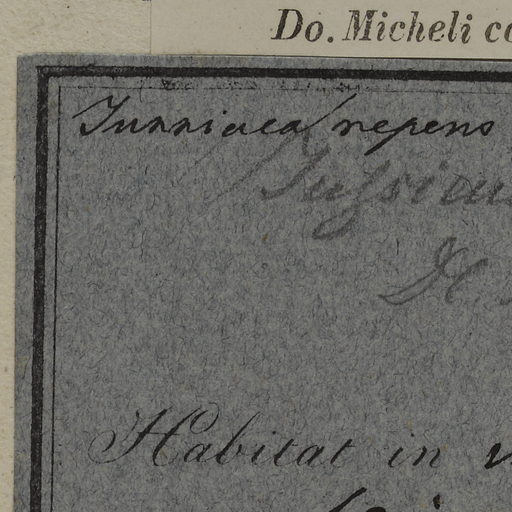 Do. Micheli co
Jussiaea repens
Jussiaeu
H.
Habitat in